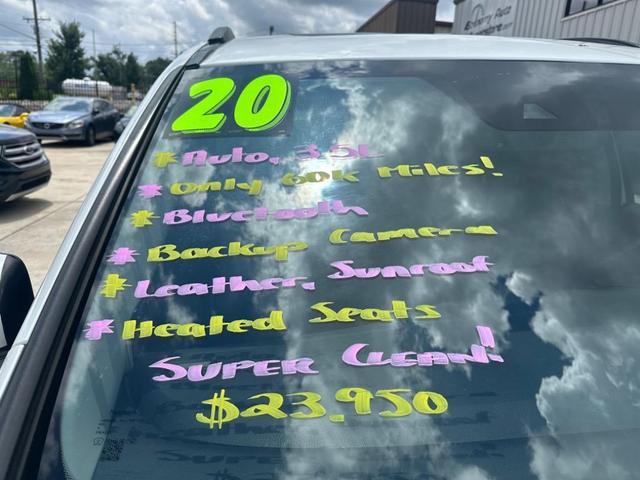 20
* Auto, 3.5L
* Only 60K Miles!
* Bluetooth
* Backup Camera
* Leather, Sunroof
* Heated Seats
Super Clean!
$23,950